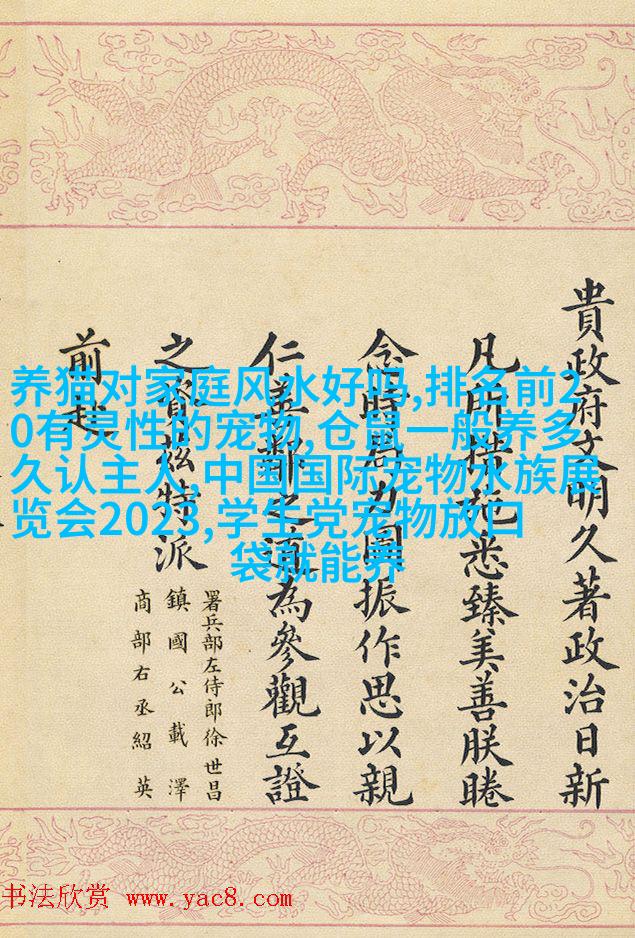 养猫对家庭风水好吗,排名前2
0有灵性的宠物,仓鼠一般养多
久认主人,中国国际宠物水族展
览会2023,学生党宠物放口
袋就能养
貴政府文明久著政治日新
凡所措施悉臻美善朕睠
念時局力圖振作思以親
仁善鄰之道為參觀互證
之資茲特派
署兵部左侍郎徐世昌
鎮國公載澤
商部右丞紹英
前赴
书法欣赏 www.yac8.com